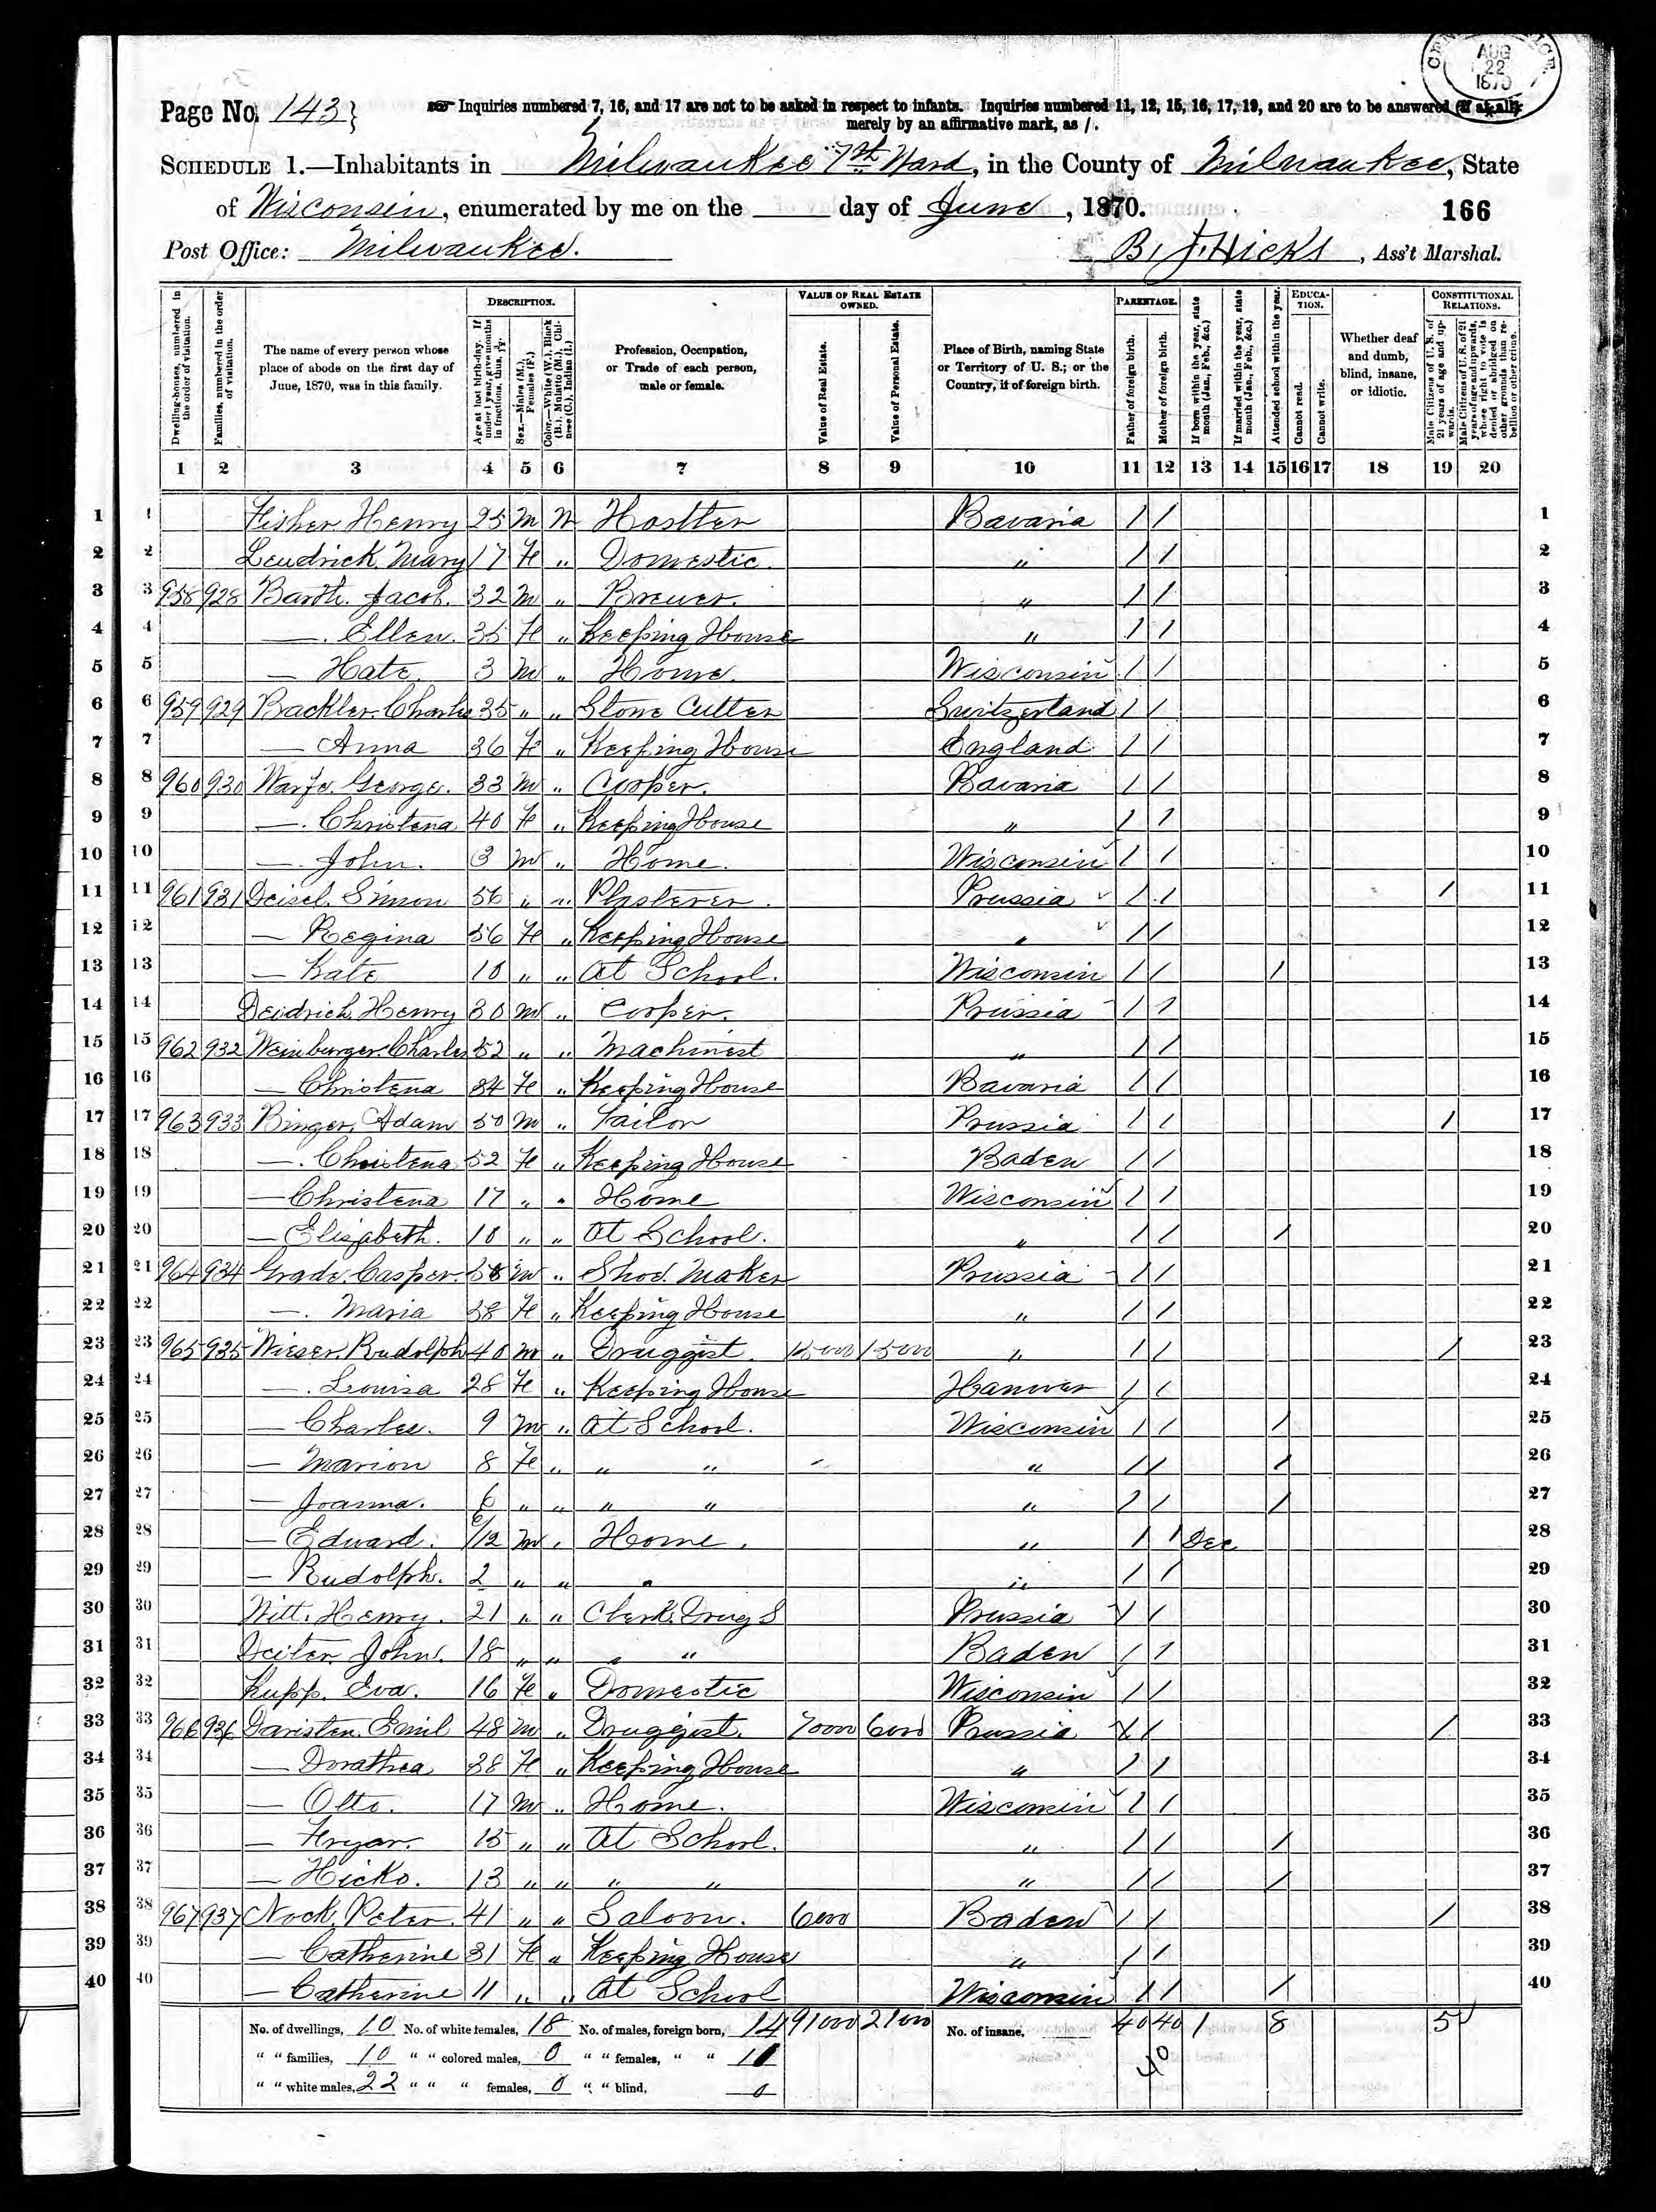 AUG
22
1870
Page No. 143}
Inquiries numbered 7, 16, and 17 are not to be asked in respect to infants. Inquiries numbered 11, 12, 15, 16, 17, 19, and 20 are to be answered (if at all)
merely by an affirmative mark, as /.
SCHEDULE 1.—Inhabitants in Milwaukee 7th Ward, in the County of Milwaukee, State
of Wisconsin, enumerated by me on the day of June, 1870.
166
Post Office: Milwaukee.
B. J. Hicks, Ass't Marshal.
Dwelling-houses, numbered in the order of visitation.
Families, numbered in the order of visitation.
The name of every person whose place of abode on the first day of June, 1870, was in this family.
DESCRIPTION.
Age at last birth-day. If under 1 year, give months in fractions, thus, 3/12
Sex.—Males (M.), Females (F.)
Color.—White (W.), Black (B.), Mulatto (M.), Chinese (C.), Indian (I.)
Profession, Occupation, or Trade of each person, male or female.
VALUE OF REAL ESTATE OWNED.
Value of Real Estate.
Value of Personal Estate.
Place of Birth, naming State or Territory of U. S.; or the Country, if of foreign birth.
PARENTAGE.
Father of foreign birth.
Mother of foreign birth.
If born within the year, state month (Jan., Feb., &c.)
If married within the year, state month (Jan., Feb., &c.)
Attended school within the year.
EDUCATION.
Cannot read.
Cannot write.
Whether deaf and dumb, blind, insane, or idiotic.
CONSTITUTIONAL RELATIONS.
Male Citizens of U. S. of 21 years of age and upwards.
Male Citizens of U. S. of 21 years of age and upwards, whose right to vote is denied or abridged on other grounds than rebellion or other crime.
1 2 3 4 5 6 7 8 9 10 11 12 13 14 15 16 17 18 19 20
1 1 Fisher Henry 25 M W Hostler Bavaria / / 1
2 2 Leudrick Mary 17 Fe " Domestic " / / 2
3 3 958 928 Barth. Jacob. 32 M " Brewer. " / / 3
4 4 — Ellen. 35 Fe " Keeping House " / / 4
5 5 — Hate. 3 M " Home. Wisconsin / / 5
6 6 959 929 Backler Charles 35 " " Stone Cutter Switzerland / / 6
7 7 — Anna 36 Fe " Keeping House England / / 7
8 8 960 930 George. 33 M " Cooper. Bavaria / / 8
9 9 — Christena 40 Fe " Keeping House " / / 9
10 10 — John. 3 M " Home. Wisconsin / / 10
11 11 961 931 Deisel. Simon 56 " " Plasterer. Prussia / / / 11
12 12 — Regina 56 Fe " Keeping House " / / 12
13 13 — Kate 10 " " At School. Wisconsin / / / 13
14 14 Deidrich Henry 30 M " Cooper. Prussia / / 14
15 15 962 932 Weinburger. Charles 52 " " Machinest " / / 15
16 16 — Christena 34 Fe " Keeping House Bavaria / / 16
17 17 963 933 Binger, Adam 50 M " Tailor Prussia / / / 17
18 18 — Christena 52 Fe " Keeping House Baden / / 18
19 19 — Christena 17 " " Home Wisconsin / / 19
20 20 — Elizabeth. 10 " " At School. " / / / 20
21 21 964 934 Grade. Casper. M " Shoe Maker Prussia / / 21
22 22 — Maria 58 Fe " Keeping House " / / 22
23 23 965 935 Wieser. Rudolph 40 M " Druggist. 15000 15000 " / / / 23
24 24 — Louisa 28 Fe " Keeping House Hanover / / 24
25 25 — Charles. 9 M " At School. Wisconsin / / / 25
26 26 — Marion 8 Fe " " " " / / / 26
27 27 — Joanna. 6 " " " " " / / / 27
28 28 — Edward. 6/12 M " Home. " / / Dec 28
29 29 — Rudolph. 2 " " " " / / 29
30 30 Witt. Henry. 21 " " Clerk. Drug S Prussia / / 30
31 31 Deiter John. 18 " " " " Baden / / 31
32 32 Kupp. Eva. 16 Fe " Domestic Wisconsin / / 32
33 33 966 936 Emil 48 M " Druggist. 70000 6000 Prussia / / / 33
34 34 — Dorathea 38 Fe " Keeping House " / / 34
35 35 — Otto. 17 M " Home. Wisconsin / / 35
36 36 — 15 " " At School. " / / / 36
37 37 — Hicko. 13 " " " " " / / / 37
38 38 967 937 Nock. Peter. 41 " " Saloon. 6000 Baden / / / 38
39 39 — Catherine 31 Fe " Keeping House " / / 39
40 40 — Catherine 11 " " At School Wisconsin / / / 40
No. of dwellings, 10 No. of white females, 18 No. of males, foreign born, 14 91000 21000 No. of insane, 40 40 1 8 5
" " families, 10 " " colored males, 0 " " females, " " 10
" " white males, 22 " " " females, 0 " " blind, 0